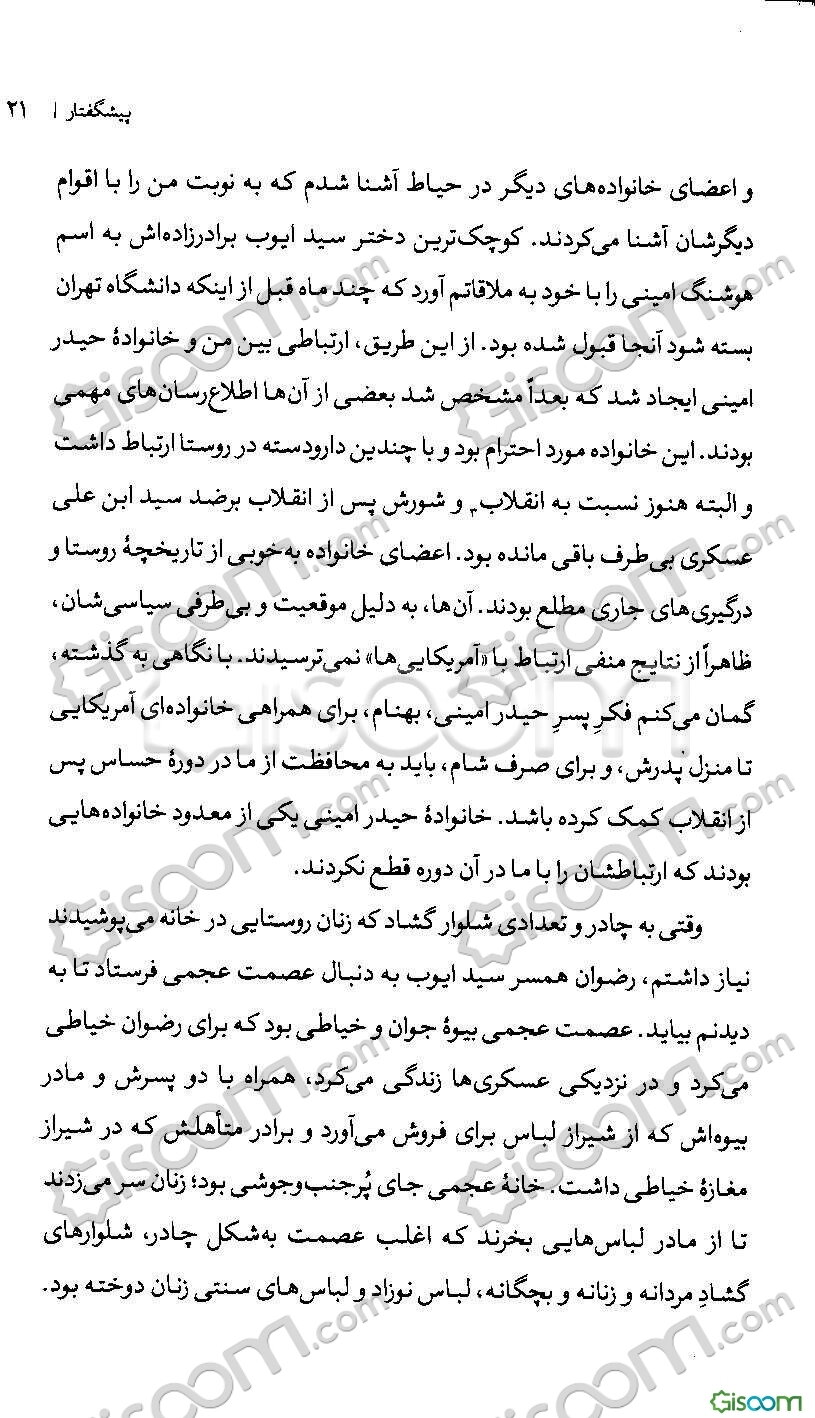 پیشگفتار / ۲۱
و اعضای خانواده‌های دیگر در حیاط آشنا شدم که به نوبت من را با اقوام
دیگرشان آشنا می‌کردند. کوچک‌ترین دختر سید ایوب برادرزاده‌اش به اسم
هوشنگ امینی را با خود به ملاقاتم آورد که چند ماه قبل از اینکه دانشگاه تهران
بسته شود آنجا قبول شده بود. از این طریق، ارتباطی بین من و خانوادهٔ حیدر
امینی ایجاد شد که بعداً مشخص شد بعضی از آن‌ها اطلاع‌رسان‌های مهمی
بودند. این خانواده مورد احترام بود و با چندین دارودسته در روستا ارتباط داشت
و البته هنوز نسبت به انقلاب و شورش پس از انقلاب برضد سید ابن علی
عسکری بی‌طرف باقی مانده بود. اعضای خانواده به‌خوبی از تاریخچهٔ روستا و
درگیری‌های جاری مطلع بودند. آن‌ها، به دلیل موقعیت و بی‌طرفی سیاسی‌شان،
ظاهراً از نتایج منفی ارتباط با «آمریکایی‌ها» نمی‌ترسیدند. با نگاهی به گذشته،
گمان می‌کنم فکرِ پسرِ حیدر امینی، بهنام، برای همراهی خانواده‌ای آمریکایی
تا منزل پدرش، و برای صرف شام، باید به محافظت از ما در دورهٔ حساس پس
از انقلاب کمک کرده باشد. خانوادهٔ حیدر امینی یکی از معدود خانواده‌هایی
بودند که ارتباطشان را با ما در آن دوره قطع نکردند.
وقتی به چادر و تعدادی شلوار گشاد که زنان روستایی در خانه می‌پوشیدند
نیاز داشتم، رضوان همسر سید ایوب به دنبال عصمت عجمی فرستاد تا به
دیدنم بیاید. عصمت عجمی بیوهٔ جوان و خیاطی بود که برای رضوان خیاطی
می‌کرد و در نزدیکی عسکری‌ها زندگی می‌کرد، همراه با دو پسرش و مادر
بیوه‌اش که از شیراز لباس برای فروش می‌آورد و برادر متأهلش که در شیراز
مغازهٔ خیاطی داشت. خانهٔ عجمی جای پُرجنب‌وجوشی بود؛ زنان سر می‌زدند
تا از مادر لباس‌هایی بخرند که اغلب عصمت به‌شکل چادر، شلوارهای
گشادِ مردانه و زنانه و بچگانه، لباس نوزاد و لباس‌های سنتی زنان دوخته بود.
Gisoom.com
Gisoom